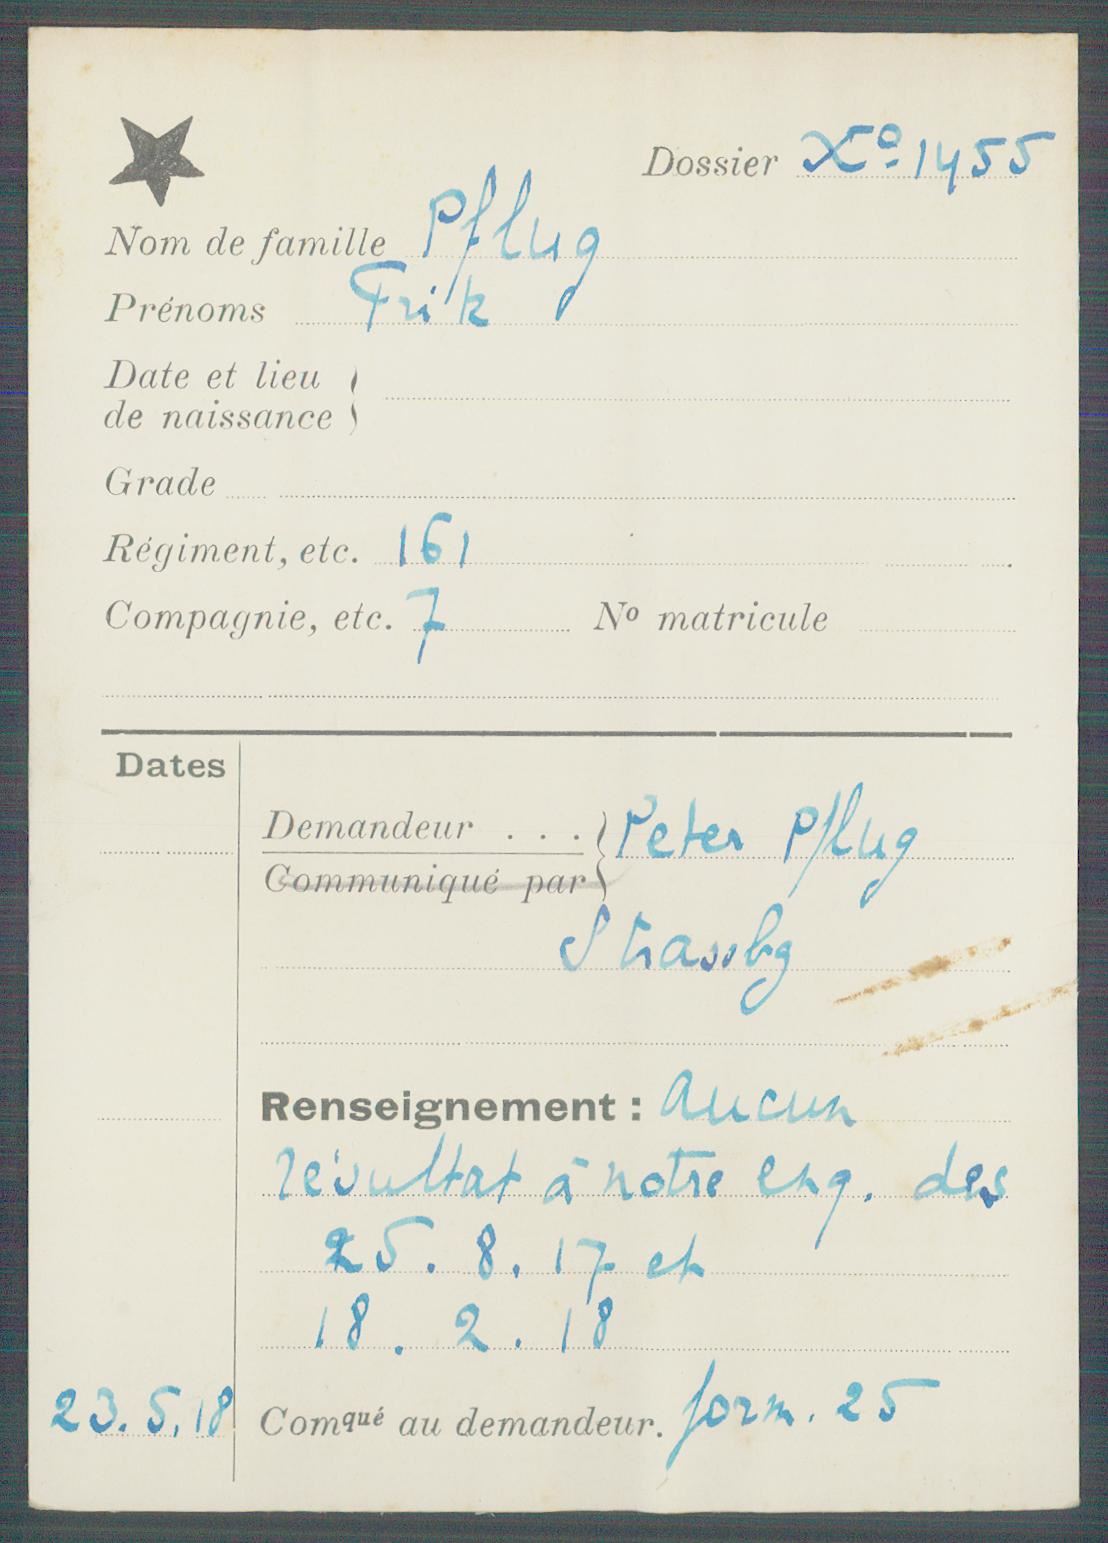 Dossier Xº 1455
Nom de famille Pflug
Prénoms Fritz
Date et lieu
de naissance
Grade
Régiment, etc. 161
Compagnie, etc. 7 Nº matricule
Dates
Demandeur . . . Peter Pflug
Communiqué par
Strassbg
Renseignement : Aucun
résultat à notre enq. des
25. 8. 17 et
18. 2. 18
23.5.18 Comqué au demandeur. form. 25